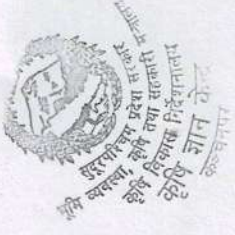 सुदूरपश्चिम प्रदेश सरकार
भूमि व्यवस्था, कृषि तथा सहकारी मन्त्रालय
कृषि विकास निर्देशनालय
कृषि ज्ञान केन्द्र
कञ्चनपुर